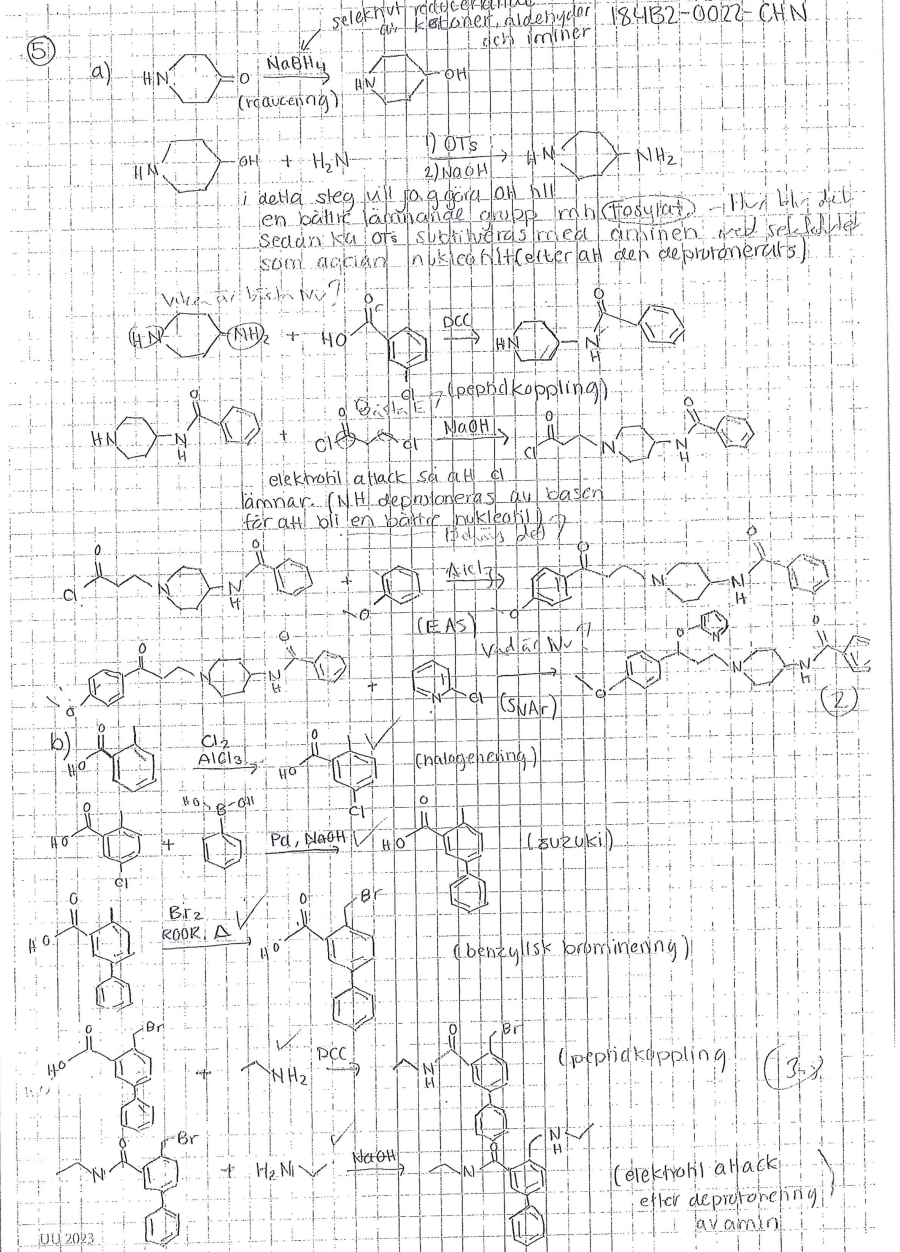 selektivt reducerande
av ketoner, aldehyder
och iminer
184B2-0022-CHN
5
a) HN O NaBH4 HN OH
(reducering)
HN OH + H2N 1) OTs HN NH2
2) NaOH
i detta steg vill jag göra OH till
en bättre lämnande grupp mh (Tosylat)
sedan ka OTs substitueras med aminen med selektivitet
som agerar nukleofilt (efter att den deprotonerats)
Vilken är bästa Nu?
HN NH2 + HO O Cl DCC HN N H O
(peptidkoppling)
Bästa E
HN N H O + Cl O Cl NaOH Cl O N N H O
elektrofil attack så att Cl
lämnar. (NH deprotoneras av basen
för att bli en bättre nukleofil)
Behövs det?
Cl O N N H O + O AlCl3 O O N N H O
(EAS)
Vad är Nu?
O O N N H O + N Cl (SNAr) O O N N N H O
(2)
b) HO O Cl2 AlCl3 HO O Cl (halogenering)
HO O Cl + HO B OH Pd, NaOH HO O (suzuki)
HO O Br2 ROOR, Δ HO O Br (benzylisk brominering)
HO O Br + NH2 DCC N H O Br (peptidkoppling
N O Br + H2N NaOH N O N H
(elektrofil attack
efter deprotonering
av amin
UU 2023